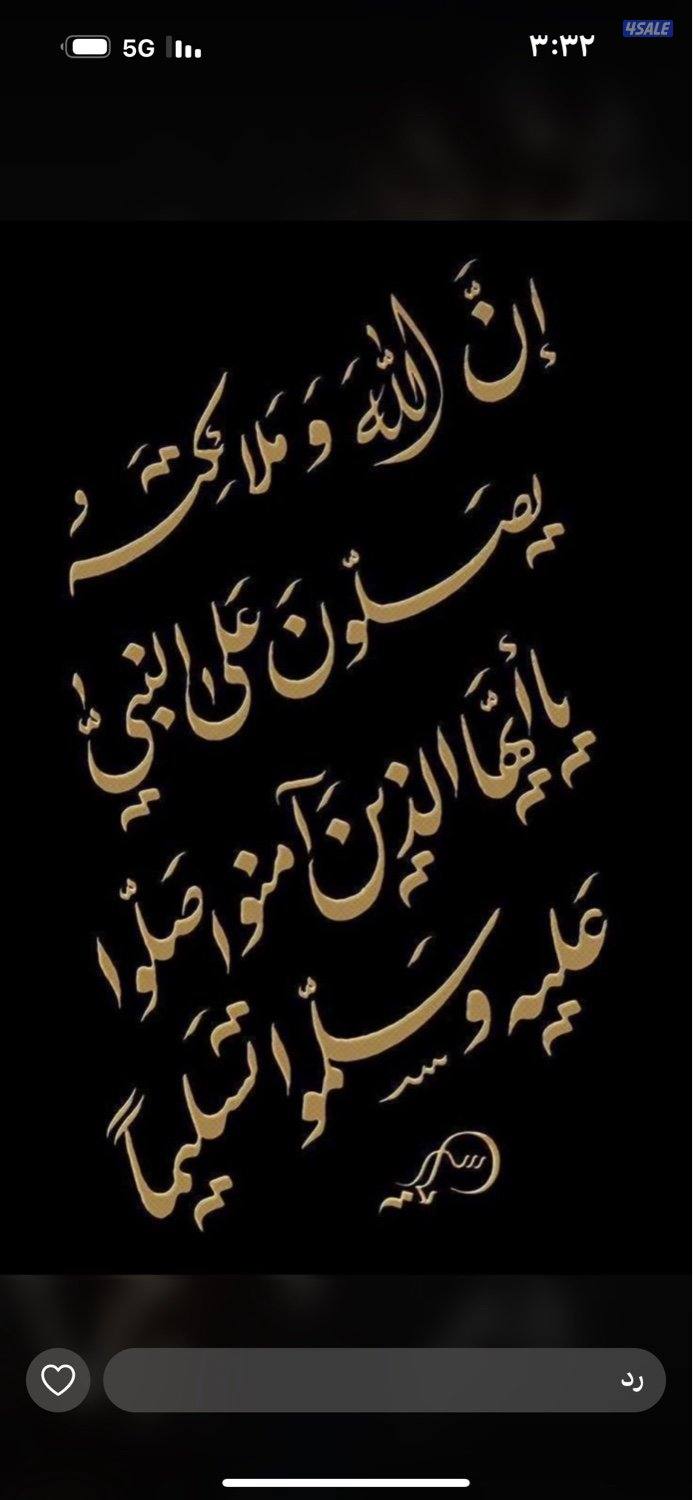 5G ٣:٣٢
4SALE
إِنَّ اللّٰهَ وَمَلَائِكَتَهُ
يُصَلُّونَ عَلَى النَّبِيِّ
يَا أَيُّهَا الَّذِينَ آمَنُوا صَلُّوا
عَلَيْهِ وَسَلِّمُوا تَسْلِيماً
رد